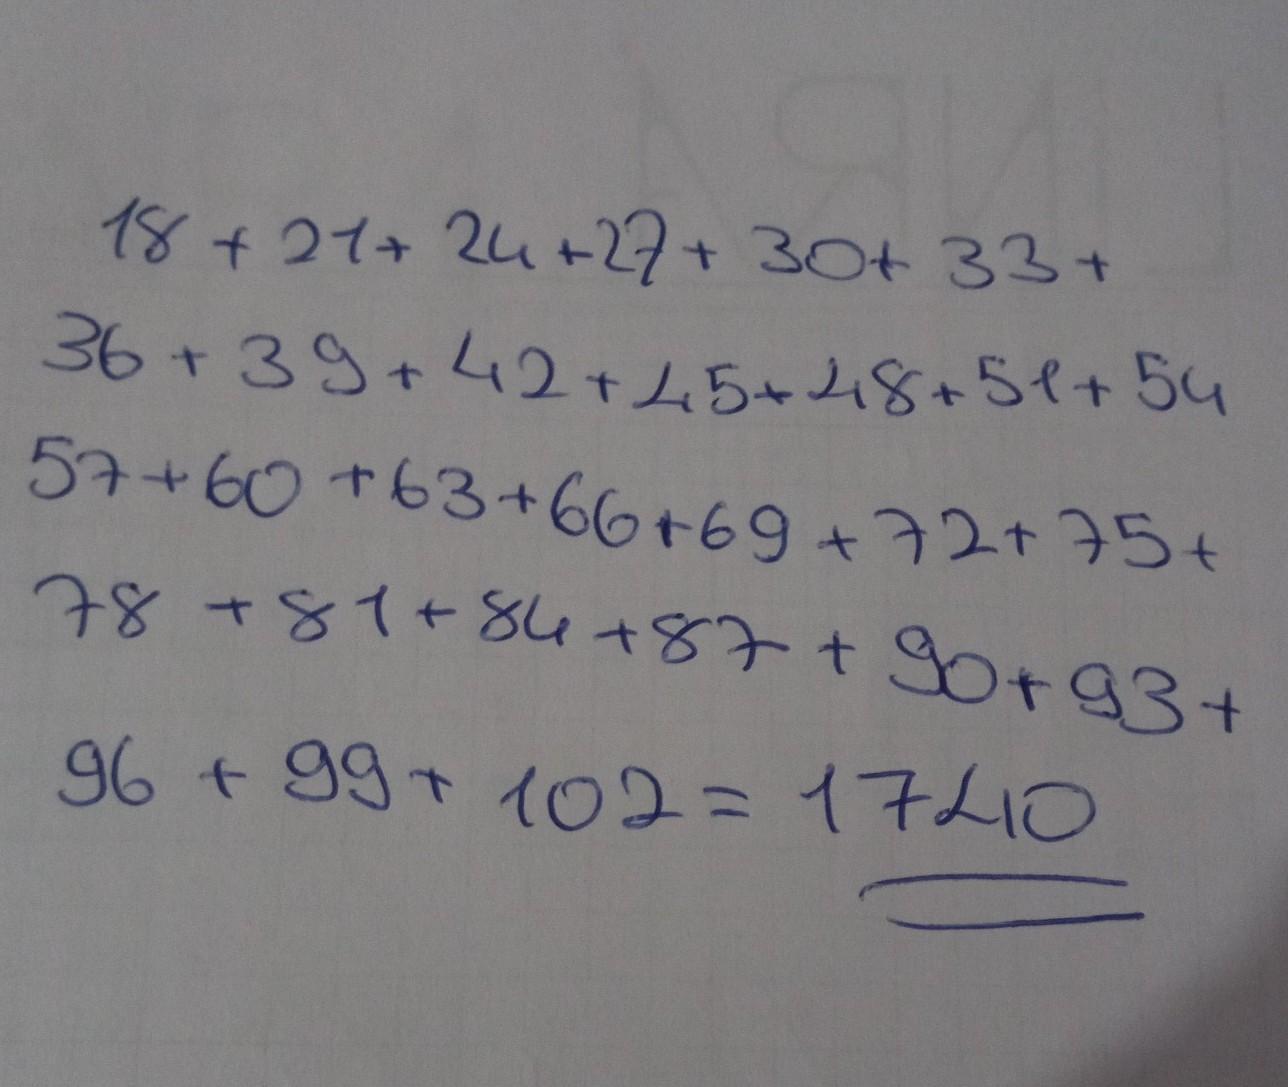 18 + 21 + 24 + 27 + 30 + 33 +
36 + 39 + 42 + 45 + 48 + 51 + 54
57 + 60 + 63 + 66 + 69 + 72 + 75 +
78 + 81 + 84 + 87 + 90 + 93 +
96 + 99 + 102 = 1740